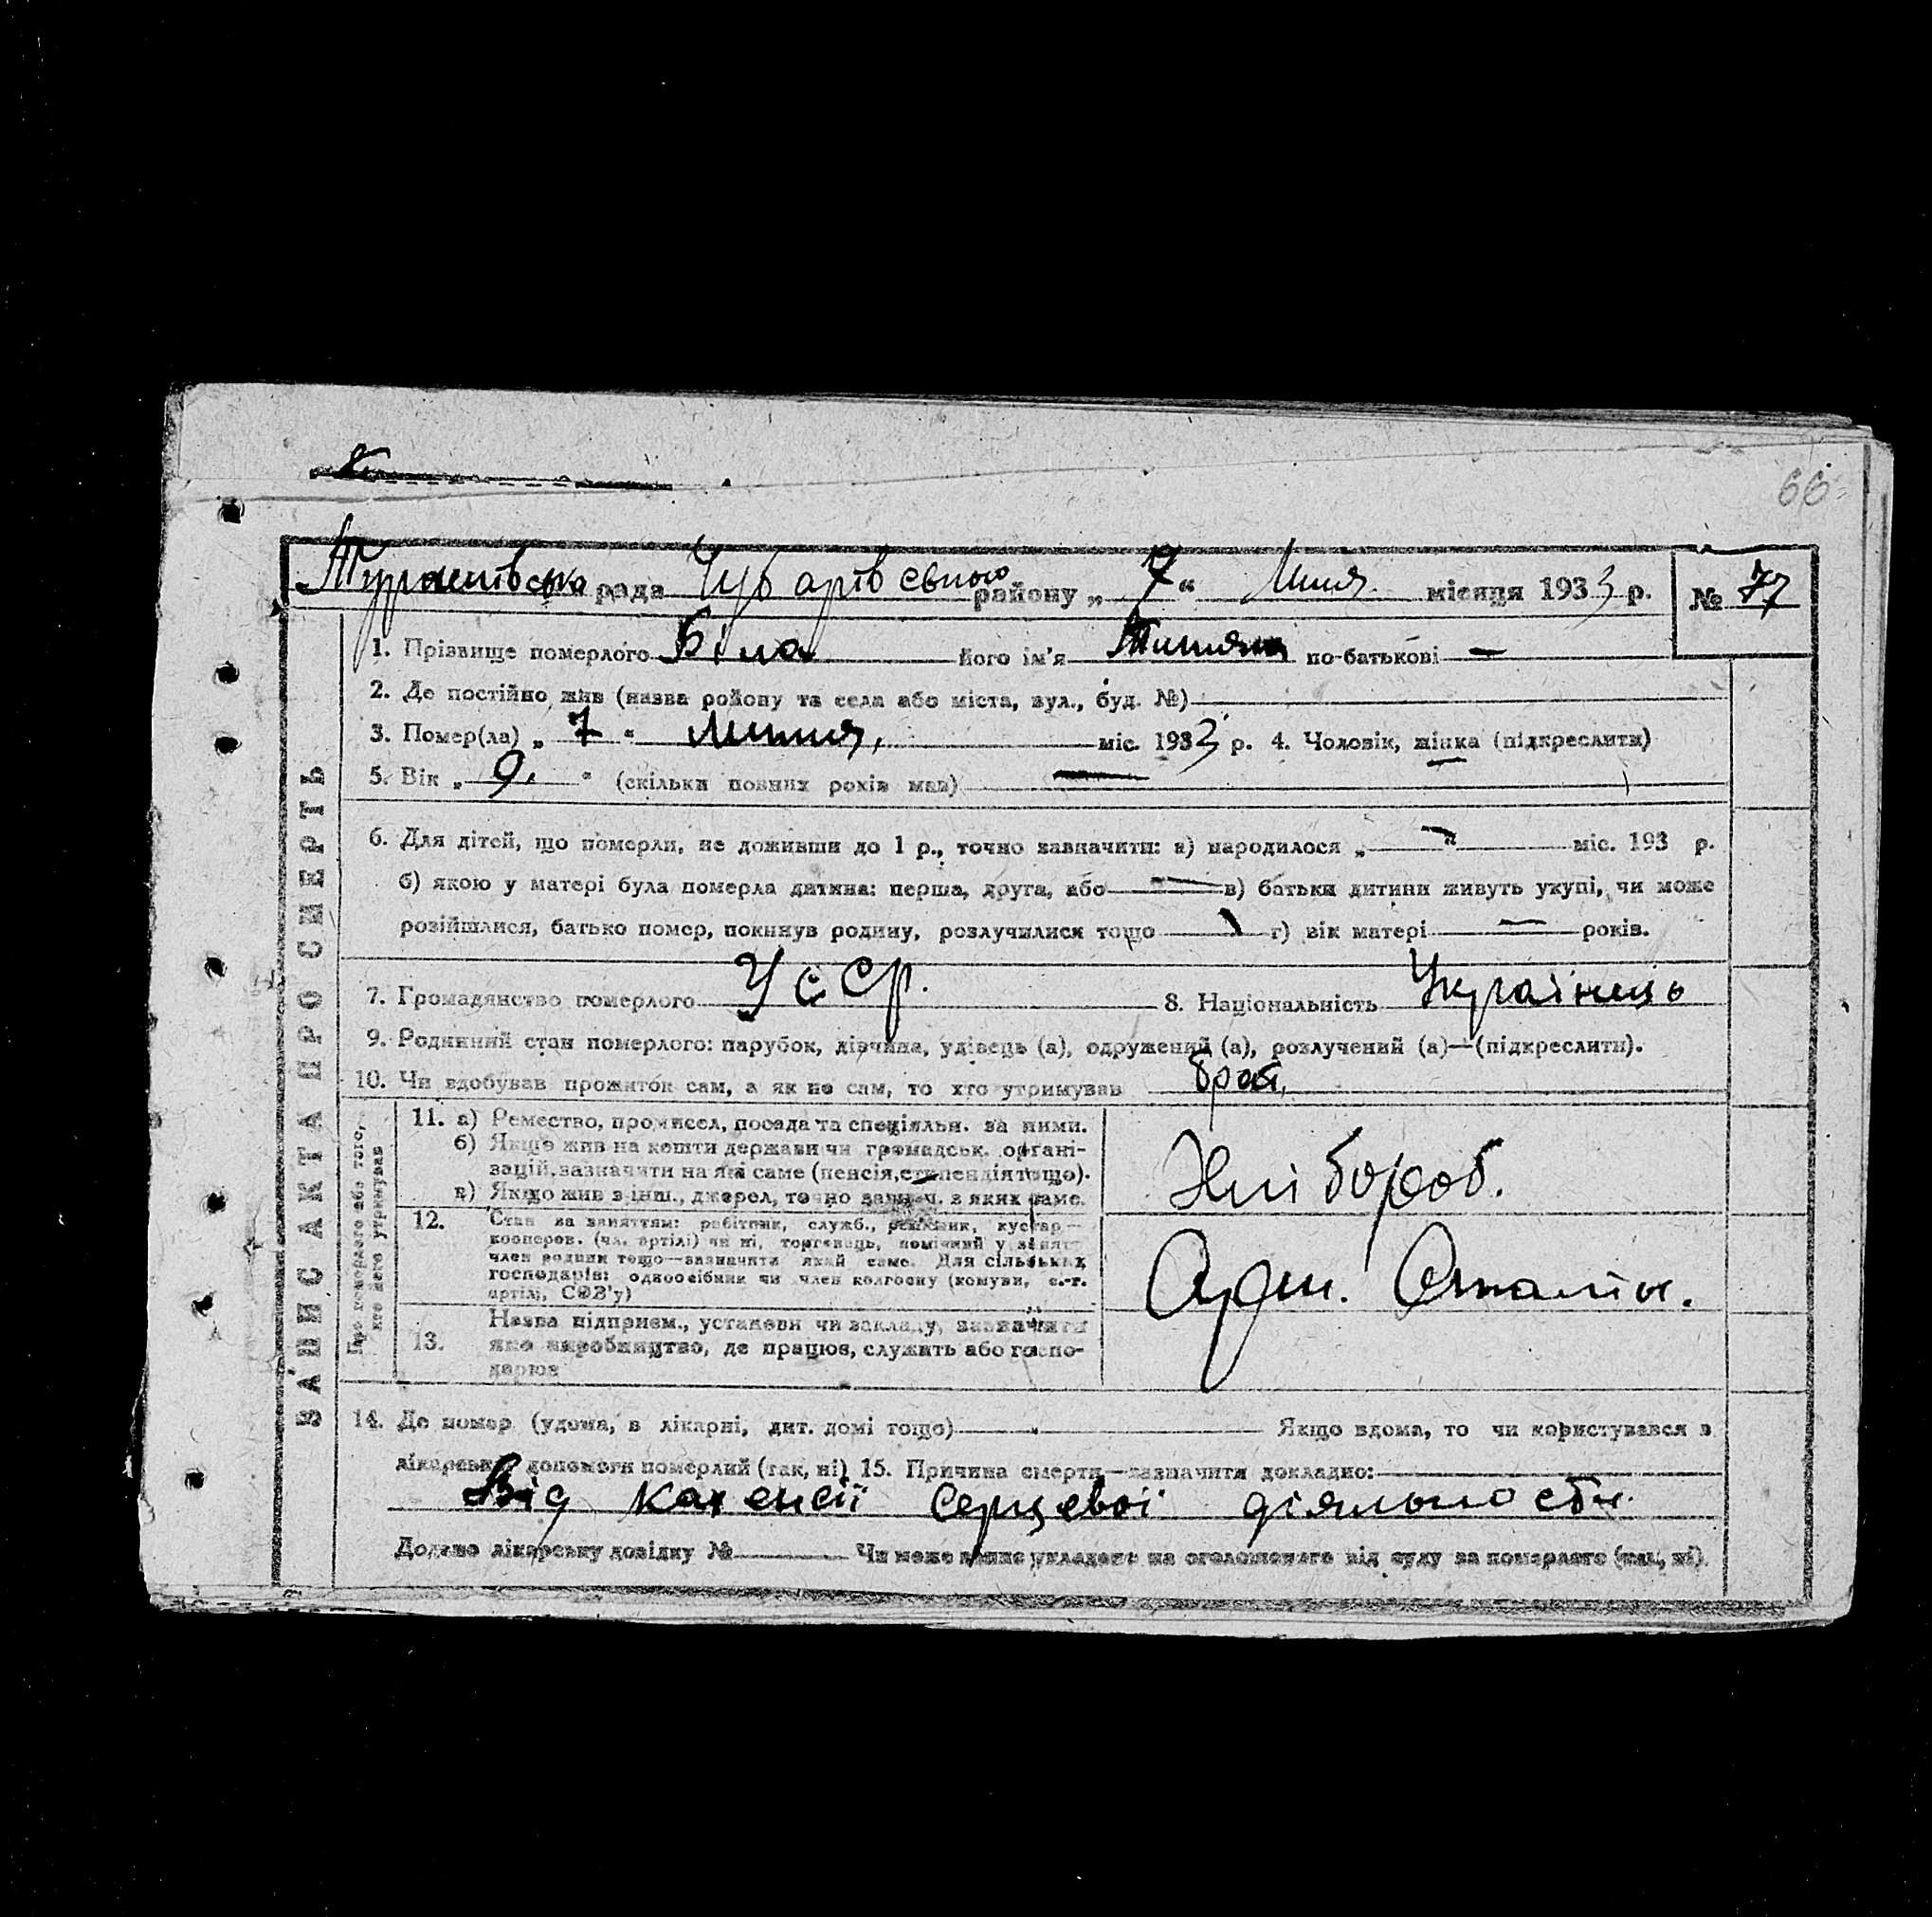 66
рада Чубарівського району „ 7 “ Липня місяця 1933 р. № 77
ЗАПИС АКТА ПРО СМЕРТЬ
1. Прізвище померлого Біла його ім'я по-батькові —
2. Де постійно жив (назва району та села або міста, вул., буд. №)
3. Помер(ла) „ 7 “ Липня, міс. 1933 р. 4. Чоловік, жінка (підкреслити)
5. Вік „ 9. “ (скільки повних років мав) —
6. Для дітей, що померли, не доживши до 1 р., точно зазначити: а) народилося „ “ міс. 193 р.
б) якою у матері була померла дитина: перша, друга, або — в) батьки дитини живуть укупі, чи може
розійшлися, батько помер, покинув родину, розлучилися тощо г) вік матері — років.
7. Громадянство померлого УССР. 8. Національність Українець
9. Родинний стан померлого: парубок, дівчина, удівець (а), одружений (а), розлучений (а)—(підкреслити).
10. Чи здобував прожиток сам, а як не сам, то хто утримував брат.
Про померлого або того, хто його утримував
11. а) Ремество, промисел, посада та спеціяльн. за ними.
б) Якщо жив на кошти держави чи громадськ. органі-
зацій, зазначити на які саме (пенсія, стипендія тощо).
в) Якщо жив з інш., джерел, точно зазнач. з яких саме.
Хлібороб.
12. Стан за заняттям: робітник, служб., кустар—
кооперов. (чл. артілі) чи ні, торговець,
член родини тощо—зазначити який саме. Для сільських
господарів: одноосібник чи член колгоспу (комуни, с.-г.
артілі, СОЗ'у)
13. Назва підприєм., установи чи закладу, зазначити
яке виробництво, де працює, служить або госпо-
дарює
14. Де помер (удома, в лікарні, дит. домі тощо) Якщо вдома, то чи користувався з
лікарської допомоги померлий (так, ні) 15. Причина смерти—зазначити докладно:
Від серцевої
Додано лікарську довідку № Чи може